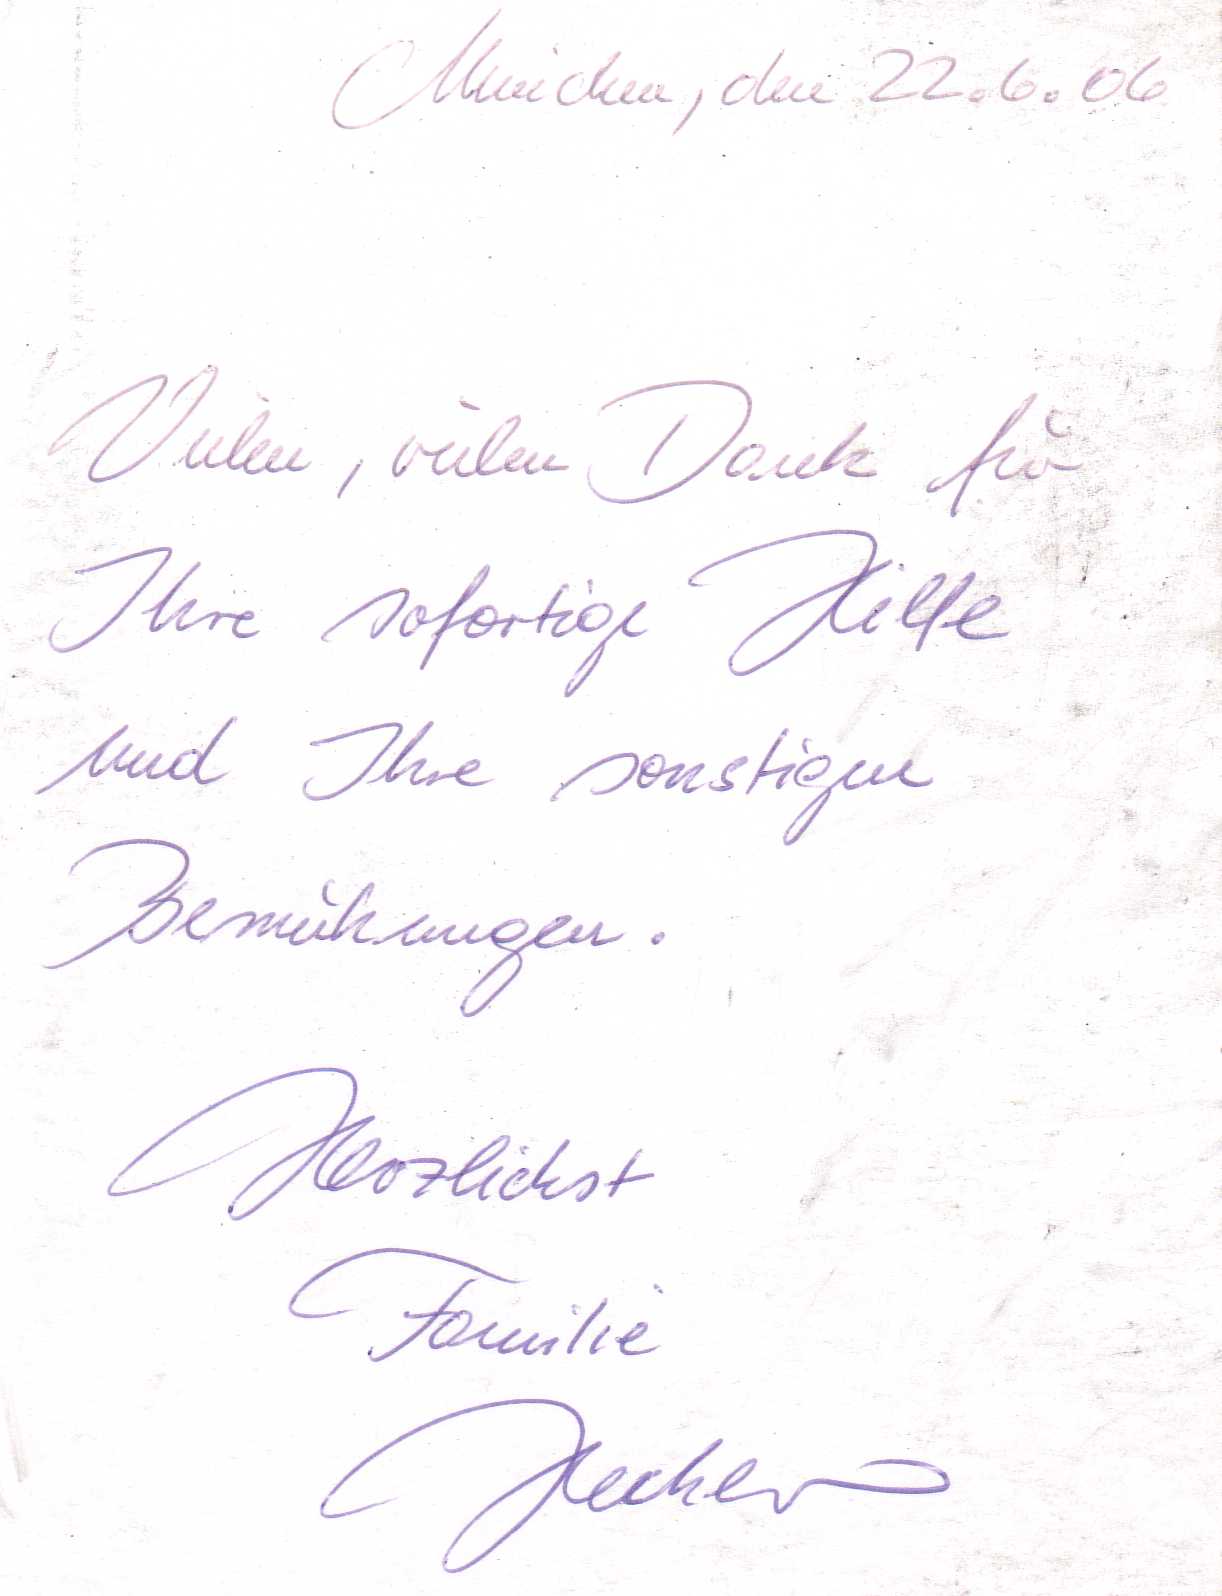 München, den 22.6.06
Vielen, vielen Dank für
Ihre sofortige Hilfe
und Ihre sonstigen
Bemühungen.
Herzlichst
Familie